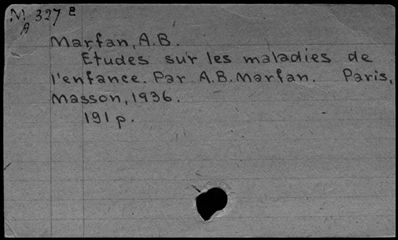 M 327e
A
Marfan, A.B.
Etudes sur les maladies de
l'enfance. Par A.B. Marfan. Paris,
Masson, 1936.
191 p.